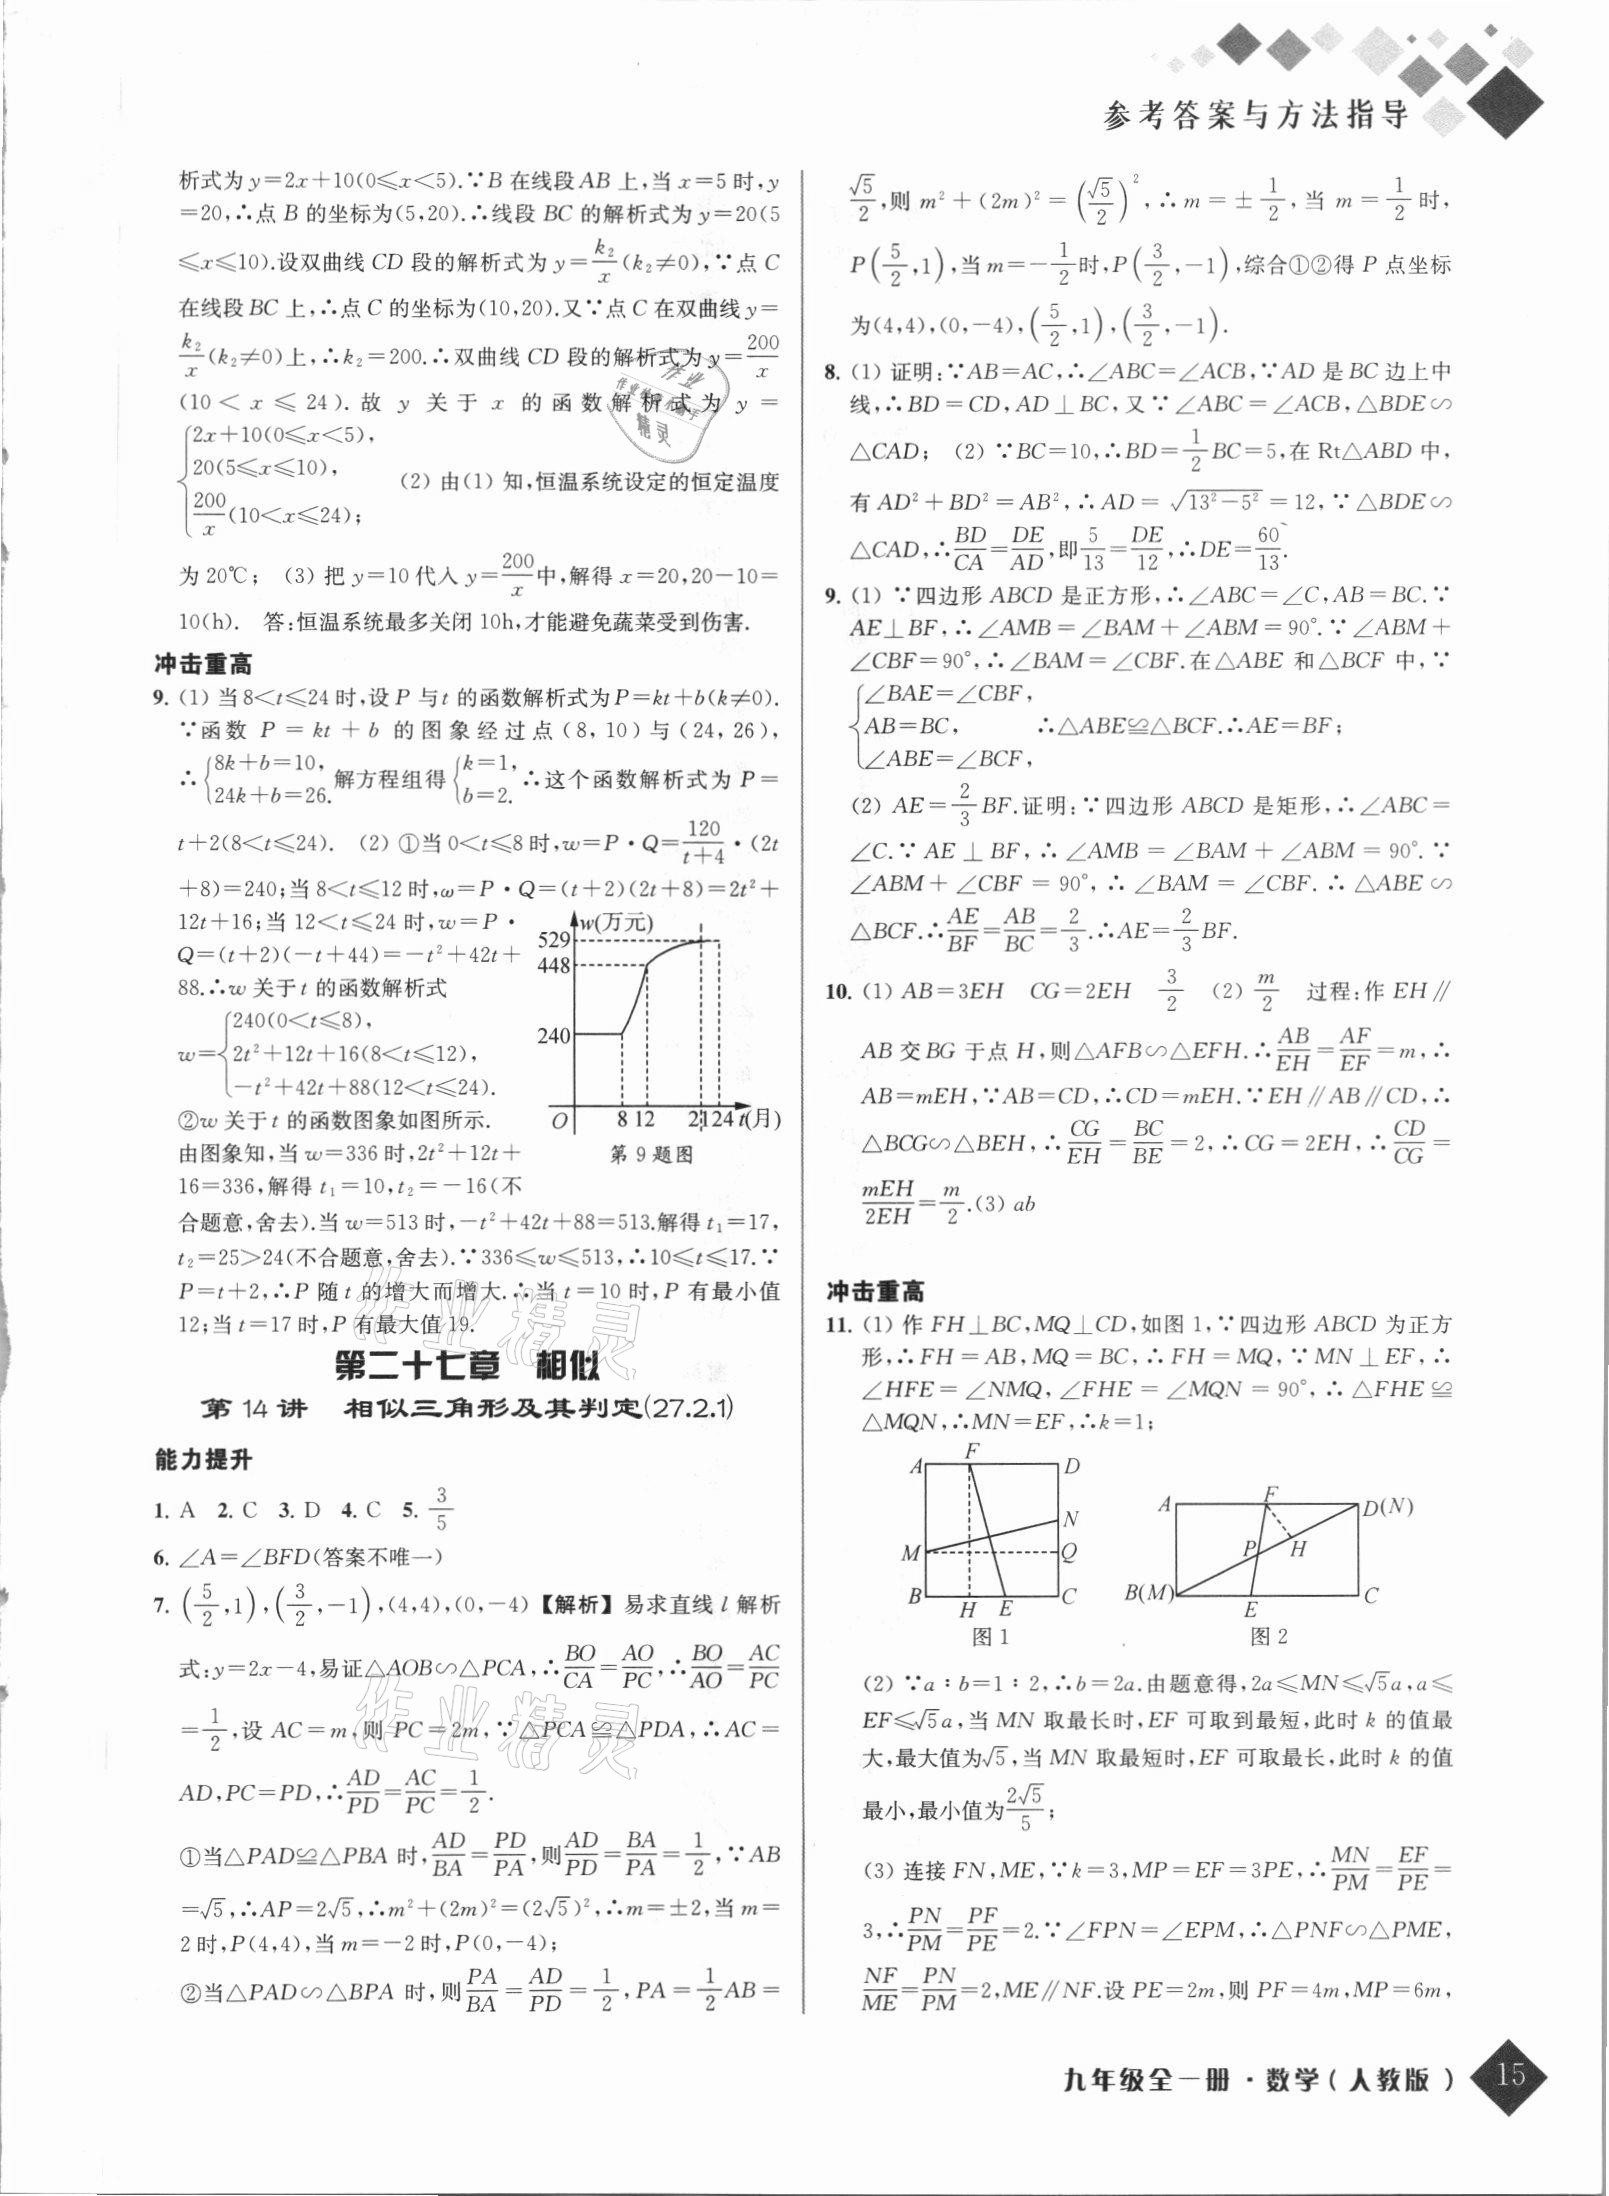 参考答案与方法指导
析式为y=2x+10(0⩽x<5).∵B在线段AB上,当x=5时,y
=20,∴点B的坐标为(5,20).∴线段BC的解析式为y=20(5
⩽x⩽10).设双曲线CD段的解析式为y=k₂/x(k₂≠0),∵点C
在线段BC上,∴点C的坐标为(10,20).又∵点C在双曲线y=
k₂/x(k₂≠0)上,∴k₂=200.∴双曲线CD段的解析式为y=200/x
(10<x⩽24).故y关于x的函数解析式为y=
{2x+10(0⩽x<5),
20(5⩽x⩽10),
200/x(10<x⩽24);
(2)由(1)知,恒温系统设定的恒定温度
为20℃;(3)把y=10代入y=200/x中,解得x=20,20-10=
10(h). 答:恒温系统最多关闭10h,才能避免蔬菜受到伤害.
冲击重高
9. (1)当8<t⩽24时,设P与t的函数解析式为P=kt+b(k≠0).
∵函数P=kt+b的图象经过点(8,10)与(24,26),
∴{8k+b=10, 24k+b=26. 解方程组得{k=1, b=2. ∴这个函数解析式为P=
t+2(8<t⩽24). (2)①当0<t⩽8时,w=P·Q=120/(t+4)·(2t
+8)=240;当8<t⩽12时,ω=P·Q=(t+2)(2t+8)=2t²+
12t+16;当12<t⩽24时,w=P·
Q=(t+2)(-t+44)=-t²+42t+
88.∴w关于t的函数解析式
w={240(0<t⩽8),
2t²+12t+16(8<t⩽12),
-t²+42t+88(12<t⩽24).
②w关于t的函数图象如图所示.
由图象知,当w=336时,2t²+12t+
16=336,解得t₁=10,t₂=-16(不
w(万元)
529
448
240
O 8 12 21 24 t(月)
第9题图
合题意,舍去).当w=513时,-t²+42t+88=513.解得t₁=17,
t₂=25>24(不合题意,舍去).∵336⩽w⩽513,∴10⩽t⩽17.∵
P=t+2,∴P随t的增大而增大.∴当t=10时,P有最小值
12;当t=17时,P有最大值19.
第二十七章 相似
第14讲 相似三角形及其判定(27.2.1)
能力提升
1. A 2. C 3. D 4. C 5. 3/5
6. ∠A=∠BFD(答案不唯一)
7. (5/2,1),(3/2,-1),(4,4),(0,-4)【解析】易求直线l解析
式:y=2x-4,易证△AOB∽△PCA,∴BO/CA=AO/PC,∴BO/AO=AC/PC
=1/2,设AC=m,则PC=2m,∵△PCA≌△PDA,∴AC=
AD,PC=PD,∴AD/PD=AC/PC=1/2.
①当△PAD≌△PBA时,AD/BA=PD/PA,则AD/PD=BA/PA=1/2,∵AB
=√5,∴AP=2√5,∴m²+(2m)²=(2√5)²,∴m=±2,当m=
2时,P(4,4),当m=-2时,P(0,-4);
②当△PAD∽△BPA时,则PA/BA=AD/PD=1/2,PA=1/2AB=
√5/2,则m²+(2m)²=(√5/2)²,∴m=±1/2,当m=1/2时,
P(5/2,1),当m=-1/2时,P(3/2,-1),综合①②得P点坐标
为(4,4),(0,-4),(5/2,1),(3/2,-1).
8. (1)证明:∵AB=AC,∴∠ABC=∠ACB,∵AD是BC边上中
线,∴BD=CD,AD⊥BC,又∵∠ABC=∠ACB,△BDE∽
△CAD;(2)∵BC=10,∴BD=1/2BC=5,在Rt△ABD中,
有AD²+BD²=AB²,∴AD=√(13²-5²)=12,∵△BDE∽
△CAD,∴BD/CA=DE/AD,即5/13=DE/12,∴DE=60/13.
9. (1)∵四边形ABCD是正方形,∴∠ABC=∠C,AB=BC.∵
AE⊥BF,∴∠AMB=∠BAM+∠ABM=90°.∵∠ABM+
∠CBF=90°,∴∠BAM=∠CBF.在△ABE和△BCF中,∵
{∠BAE=∠CBF,
AB=BC, ∴△ABE≌△BCF.∴AE=BF;
∠ABE=∠BCF,
(2)AE=2/3BF.证明:∵四边形ABCD是矩形,∴∠ABC=
∠C.∵AE⊥BF,∴∠AMB=∠BAM+∠ABM=90°.∵
∠ABM+∠CBF=90°,∴∠BAM=∠CBF.∴△ABE∽
△BCF.∴AE/BF=AB/BC=2/3.∴AE=2/3BF.
10. (1)AB=3EH CG=2EH 3/2 (2)m/2 过程:作EH∥
AB交BG于点H,则△AFB∽△EFH.∴AB/EH=AF/EF=m,∴
AB=mEH,∵AB=CD,∴CD=mEH.∵EH∥AB∥CD,∴
△BCG∽△BEH,∴CG/EH=BC/BE=2,∴CG=2EH,∴CD/CG=
mEH/2EH=m/2.(3)ab
冲击重高
11. (1)作FH⊥BC,MQ⊥CD,如图1,∵四边形ABCD为正方
形,∴FH=AB,MQ=BC,∴FH=MQ,∵MN⊥EF,∴
∠HFE=∠NMQ,∠FHE=∠MQN=90°,∴△FHE≌
△MQN,∴MN=EF,∴k=1;
A F D
N
M Q
B H E C
图1
A F D(N)
P H
B(M) E C
图2
(2)∵a∶b=1∶2,∴b=2a.由题意得,2a⩽MN⩽√5a,a⩽
EF⩽√5a,当MN取最长时,EF可取到最短,此时k的值最
大,最大值为√5,当MN取最短时,EF可取最长,此时k的值
最小,最小值为2√5/5;
(3)连接FN,ME,∵k=3,MP=EF=3PE,∴MN/PM=EF/PE=
3,∴PN/PM=PF/PE=2.∵∠FPN=∠EPM,∴△PNF∽△PME,
NF/ME=PN/PM=2,ME∥NF.设PE=2m,则PF=4m,MP=6m,
九年级全一册·数学(人教版)
15
作业精灵
作业精灵
作业
精灵